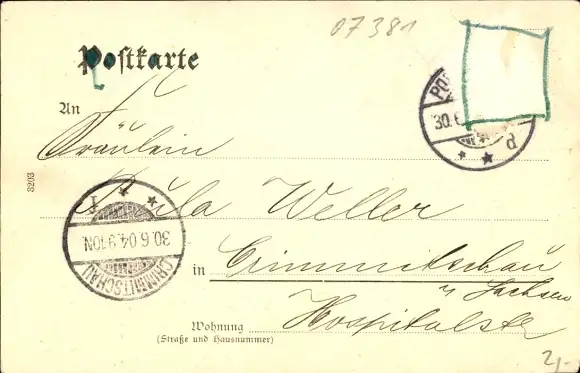 07381
Postkarte
An
Fräulein
Weller
in Crimmitschau
Sachsen
Wohnung Hospitalstr
(Straße und Hausnummer)
3203
30.6
d
30.6.04.9-10N.
CRIMMITSCHAU
2,-